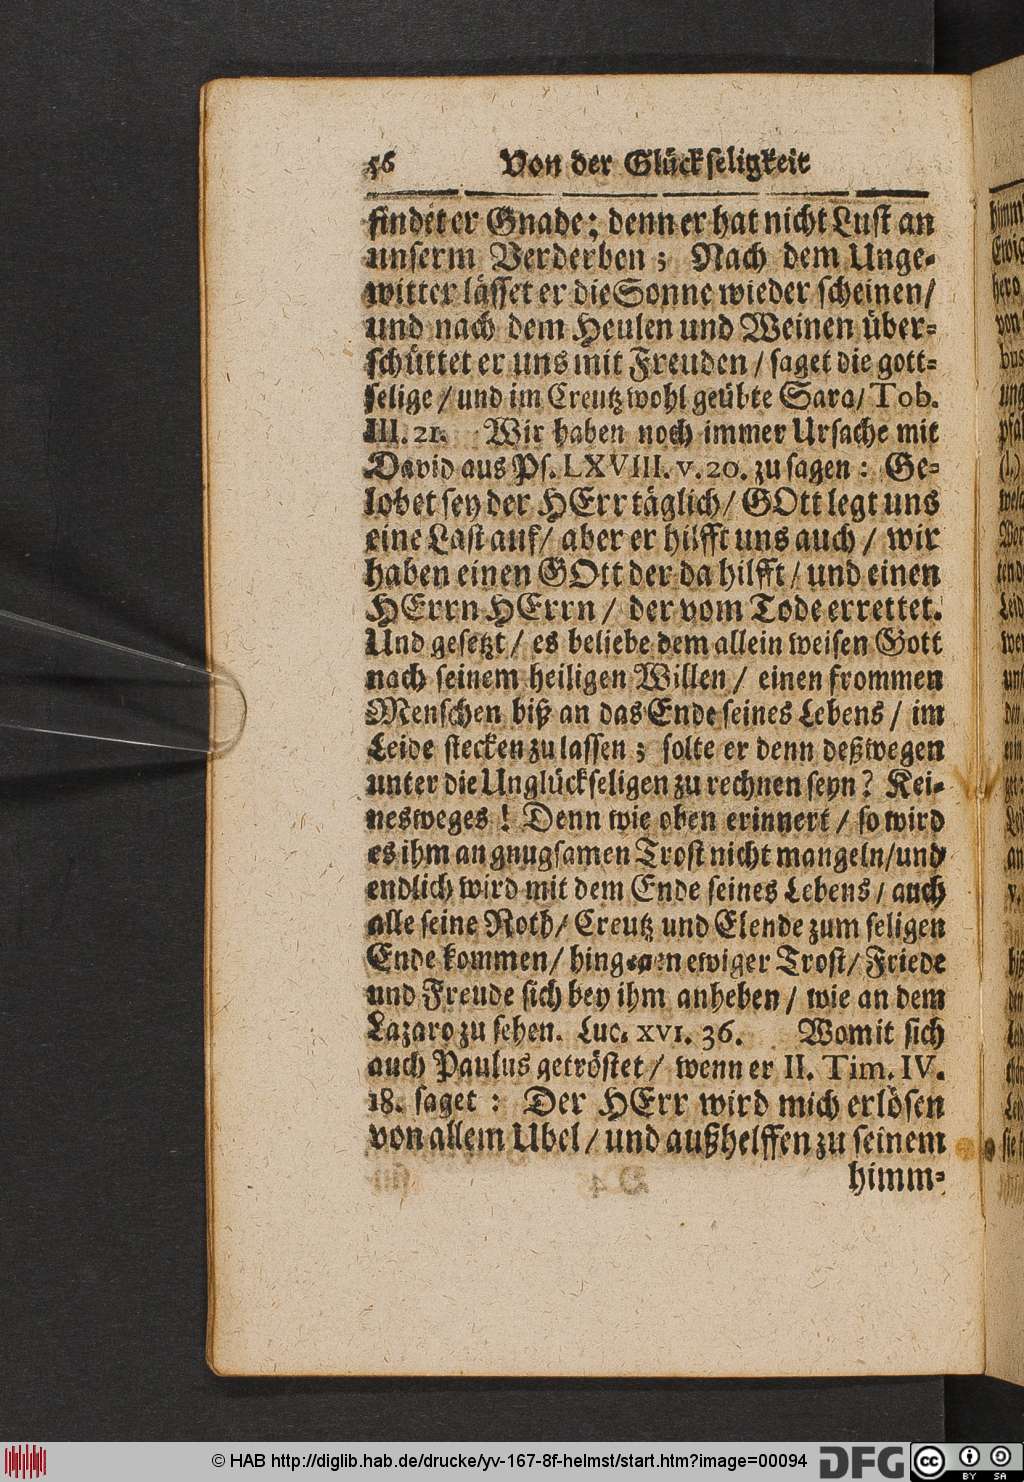 56 Von der Glückseligkeit
findet er Gnade; denn er hat nicht Lust an
unserm Verderben; Nach dem Unge-
witter lässet er die Sonne wieder scheinen/
und nach dem Heulen und Weinen über-
schüttet er uns mit Freuden / saget die gott-
selige / und im Creutz wohl geübte Sara/ Tob.
III. 21. Wir haben noch immer Ursache mit
David aus Ps. LXVIII. v. 20. zu sagen: Ge-
lobet sey der HErr täglich/ GOtt legt uns
eine Last auf/ aber er hilfft uns auch / wir
haben einen GOtt der da hilfft / und einen
HErrn HErrn / der vom Tode errettet.
Und gesetzt / es beliebe dem allein weisen Gott
nach seinem heiligen Willen / einen frommen
Menschen biß an das Ende seines Lebens / im
Leide stecken zu lassen; solte er denn deßwegen
unter die Unglückseligen zu rechnen seyn? Kei-
nesweges! Denn wie oben erinnert / so wird
es ihm an gnugsamen Trost nicht mangeln/und
endlich wird mit dem Ende seines Lebens / auch
alle seine Noth/ Creutz und Elende zum seligen
Ende kommen/ hingegen ewiger Trost/ Friede
und Freude sich bey ihm anheben / wie an dem
Lazaro zu sehen. Luc. XVI. 36. Womit sich
auch Paulus getröstet / wenn er II. Tim. IV.
18. saget: Der HErr wird mich erlösen
von allem Ubel / und außhelffen zu seinem
himm-
© HAB http://diglib.hab.de/drucke/yv-167-8f-helmst/start.htm?image=00094
DFG
CC BY SA